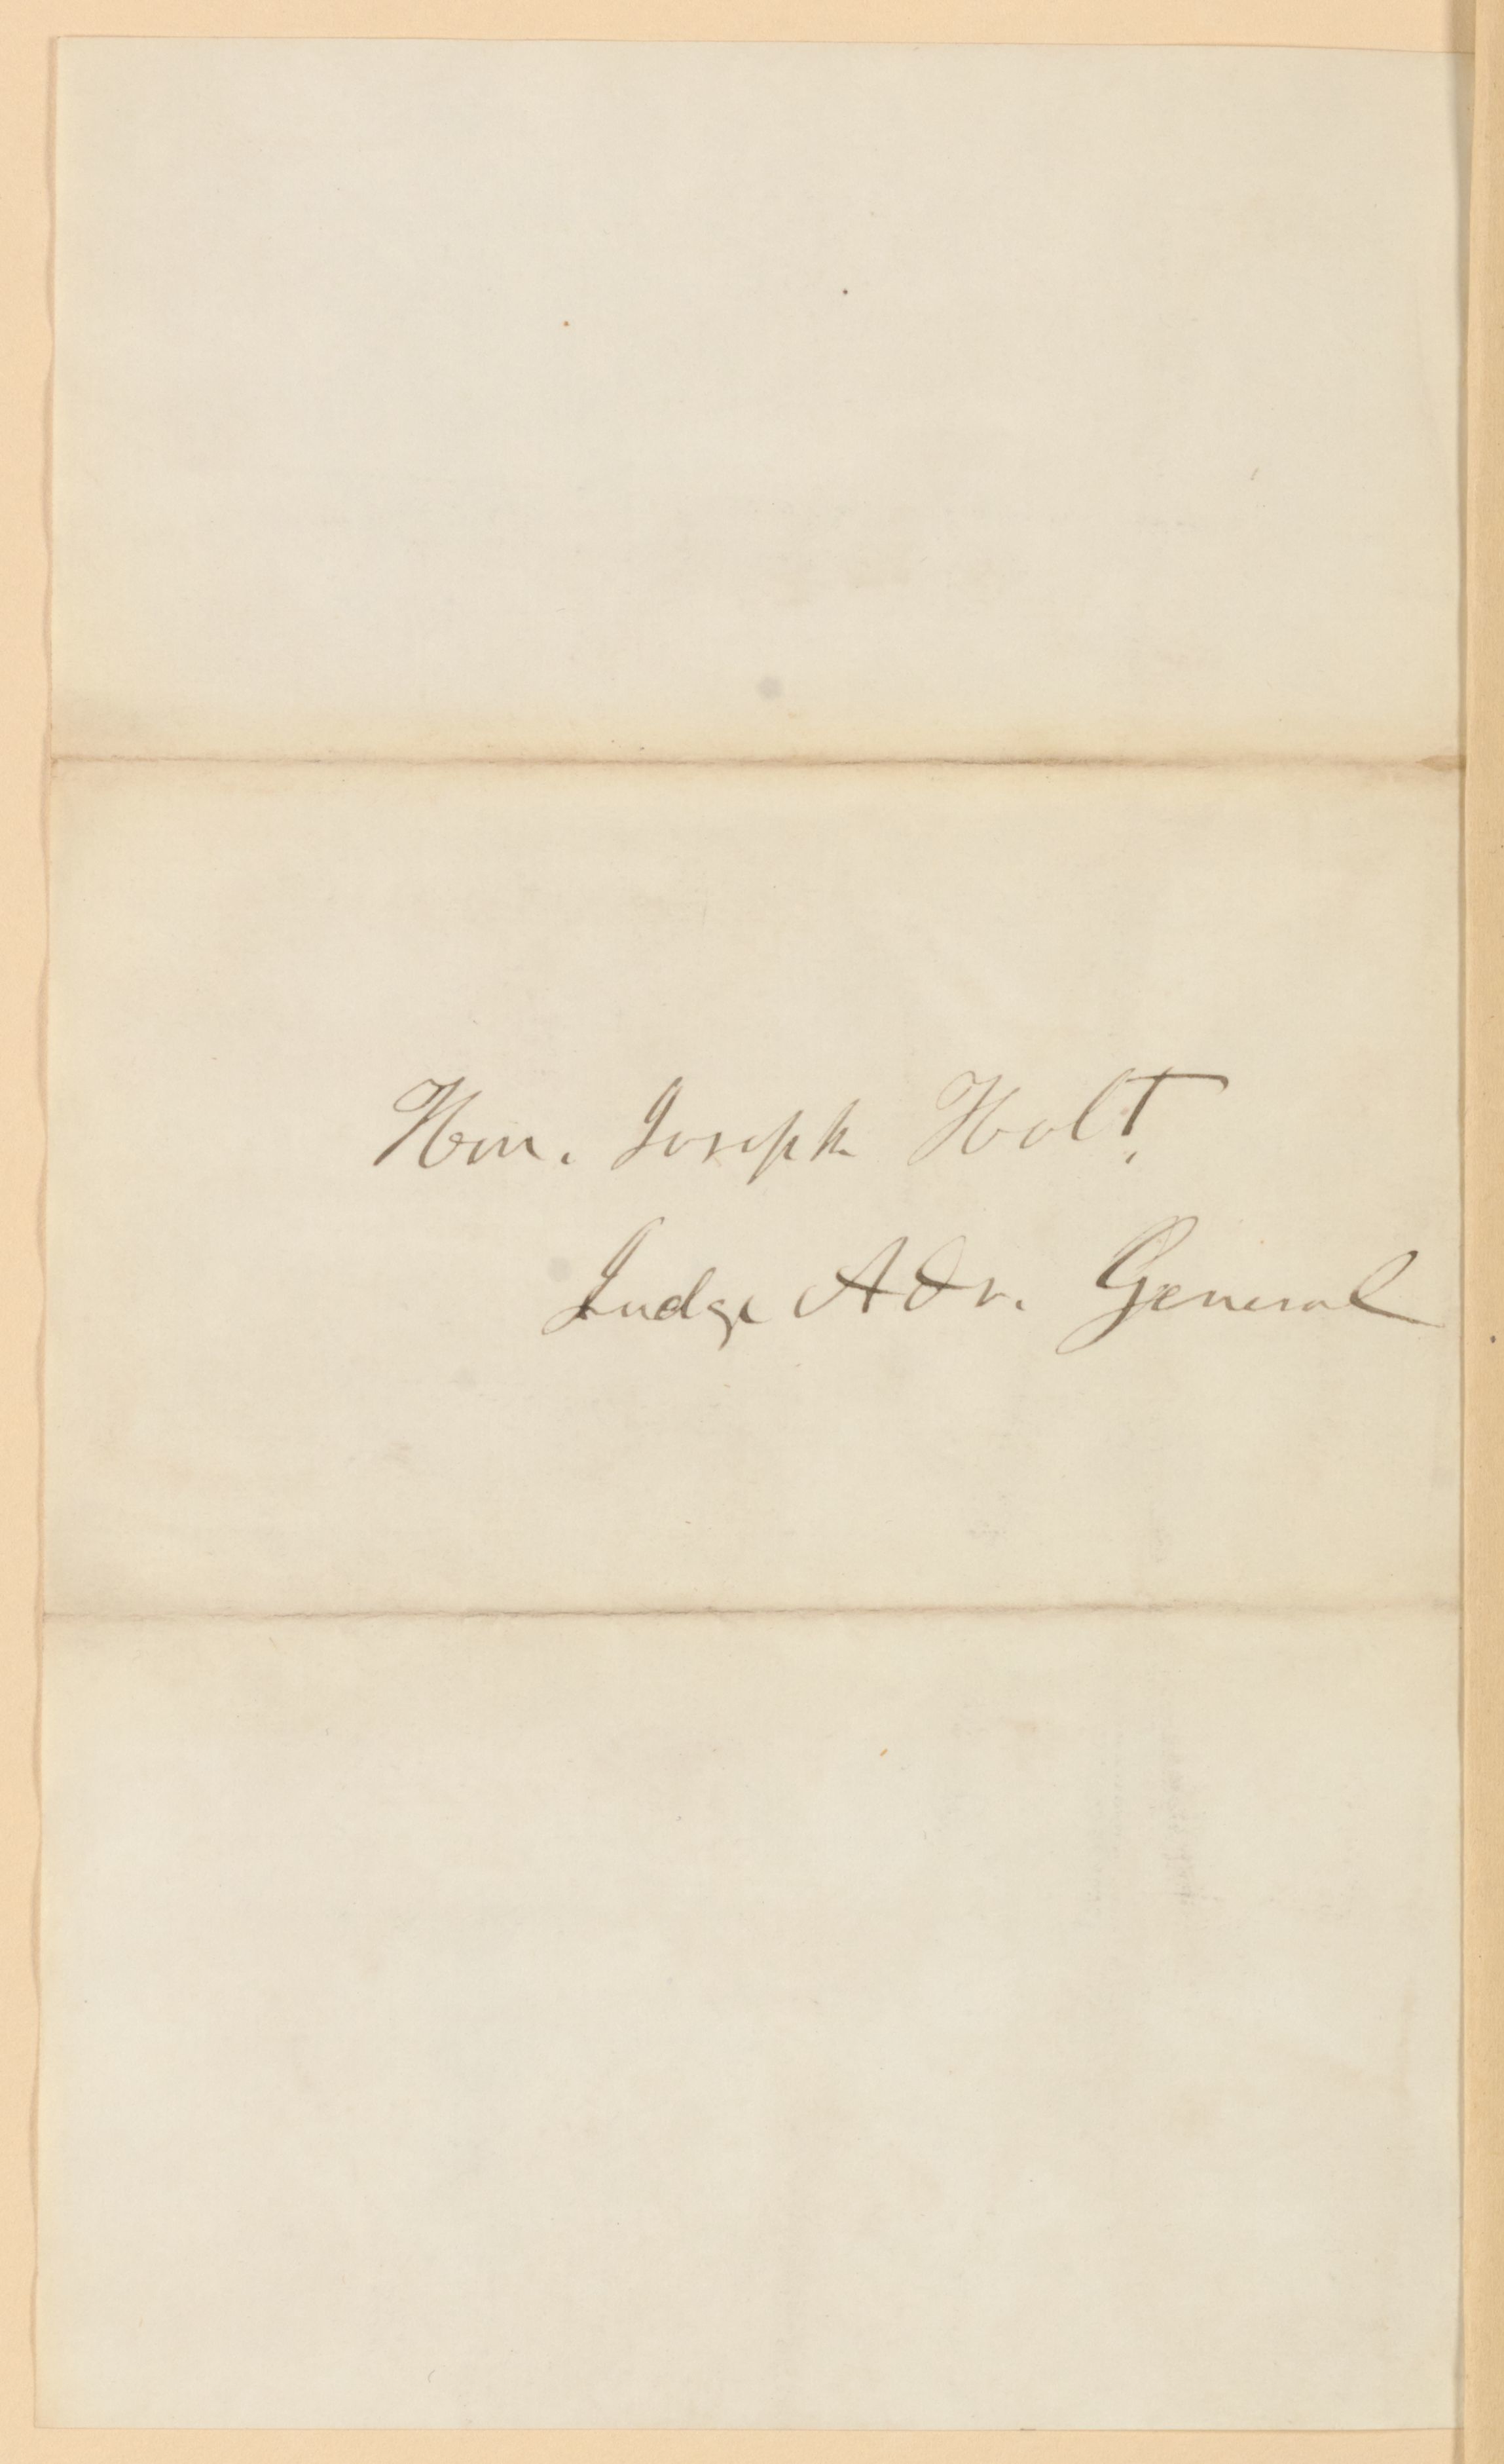 Hon. Joseph Holt,
Judge Adv. General